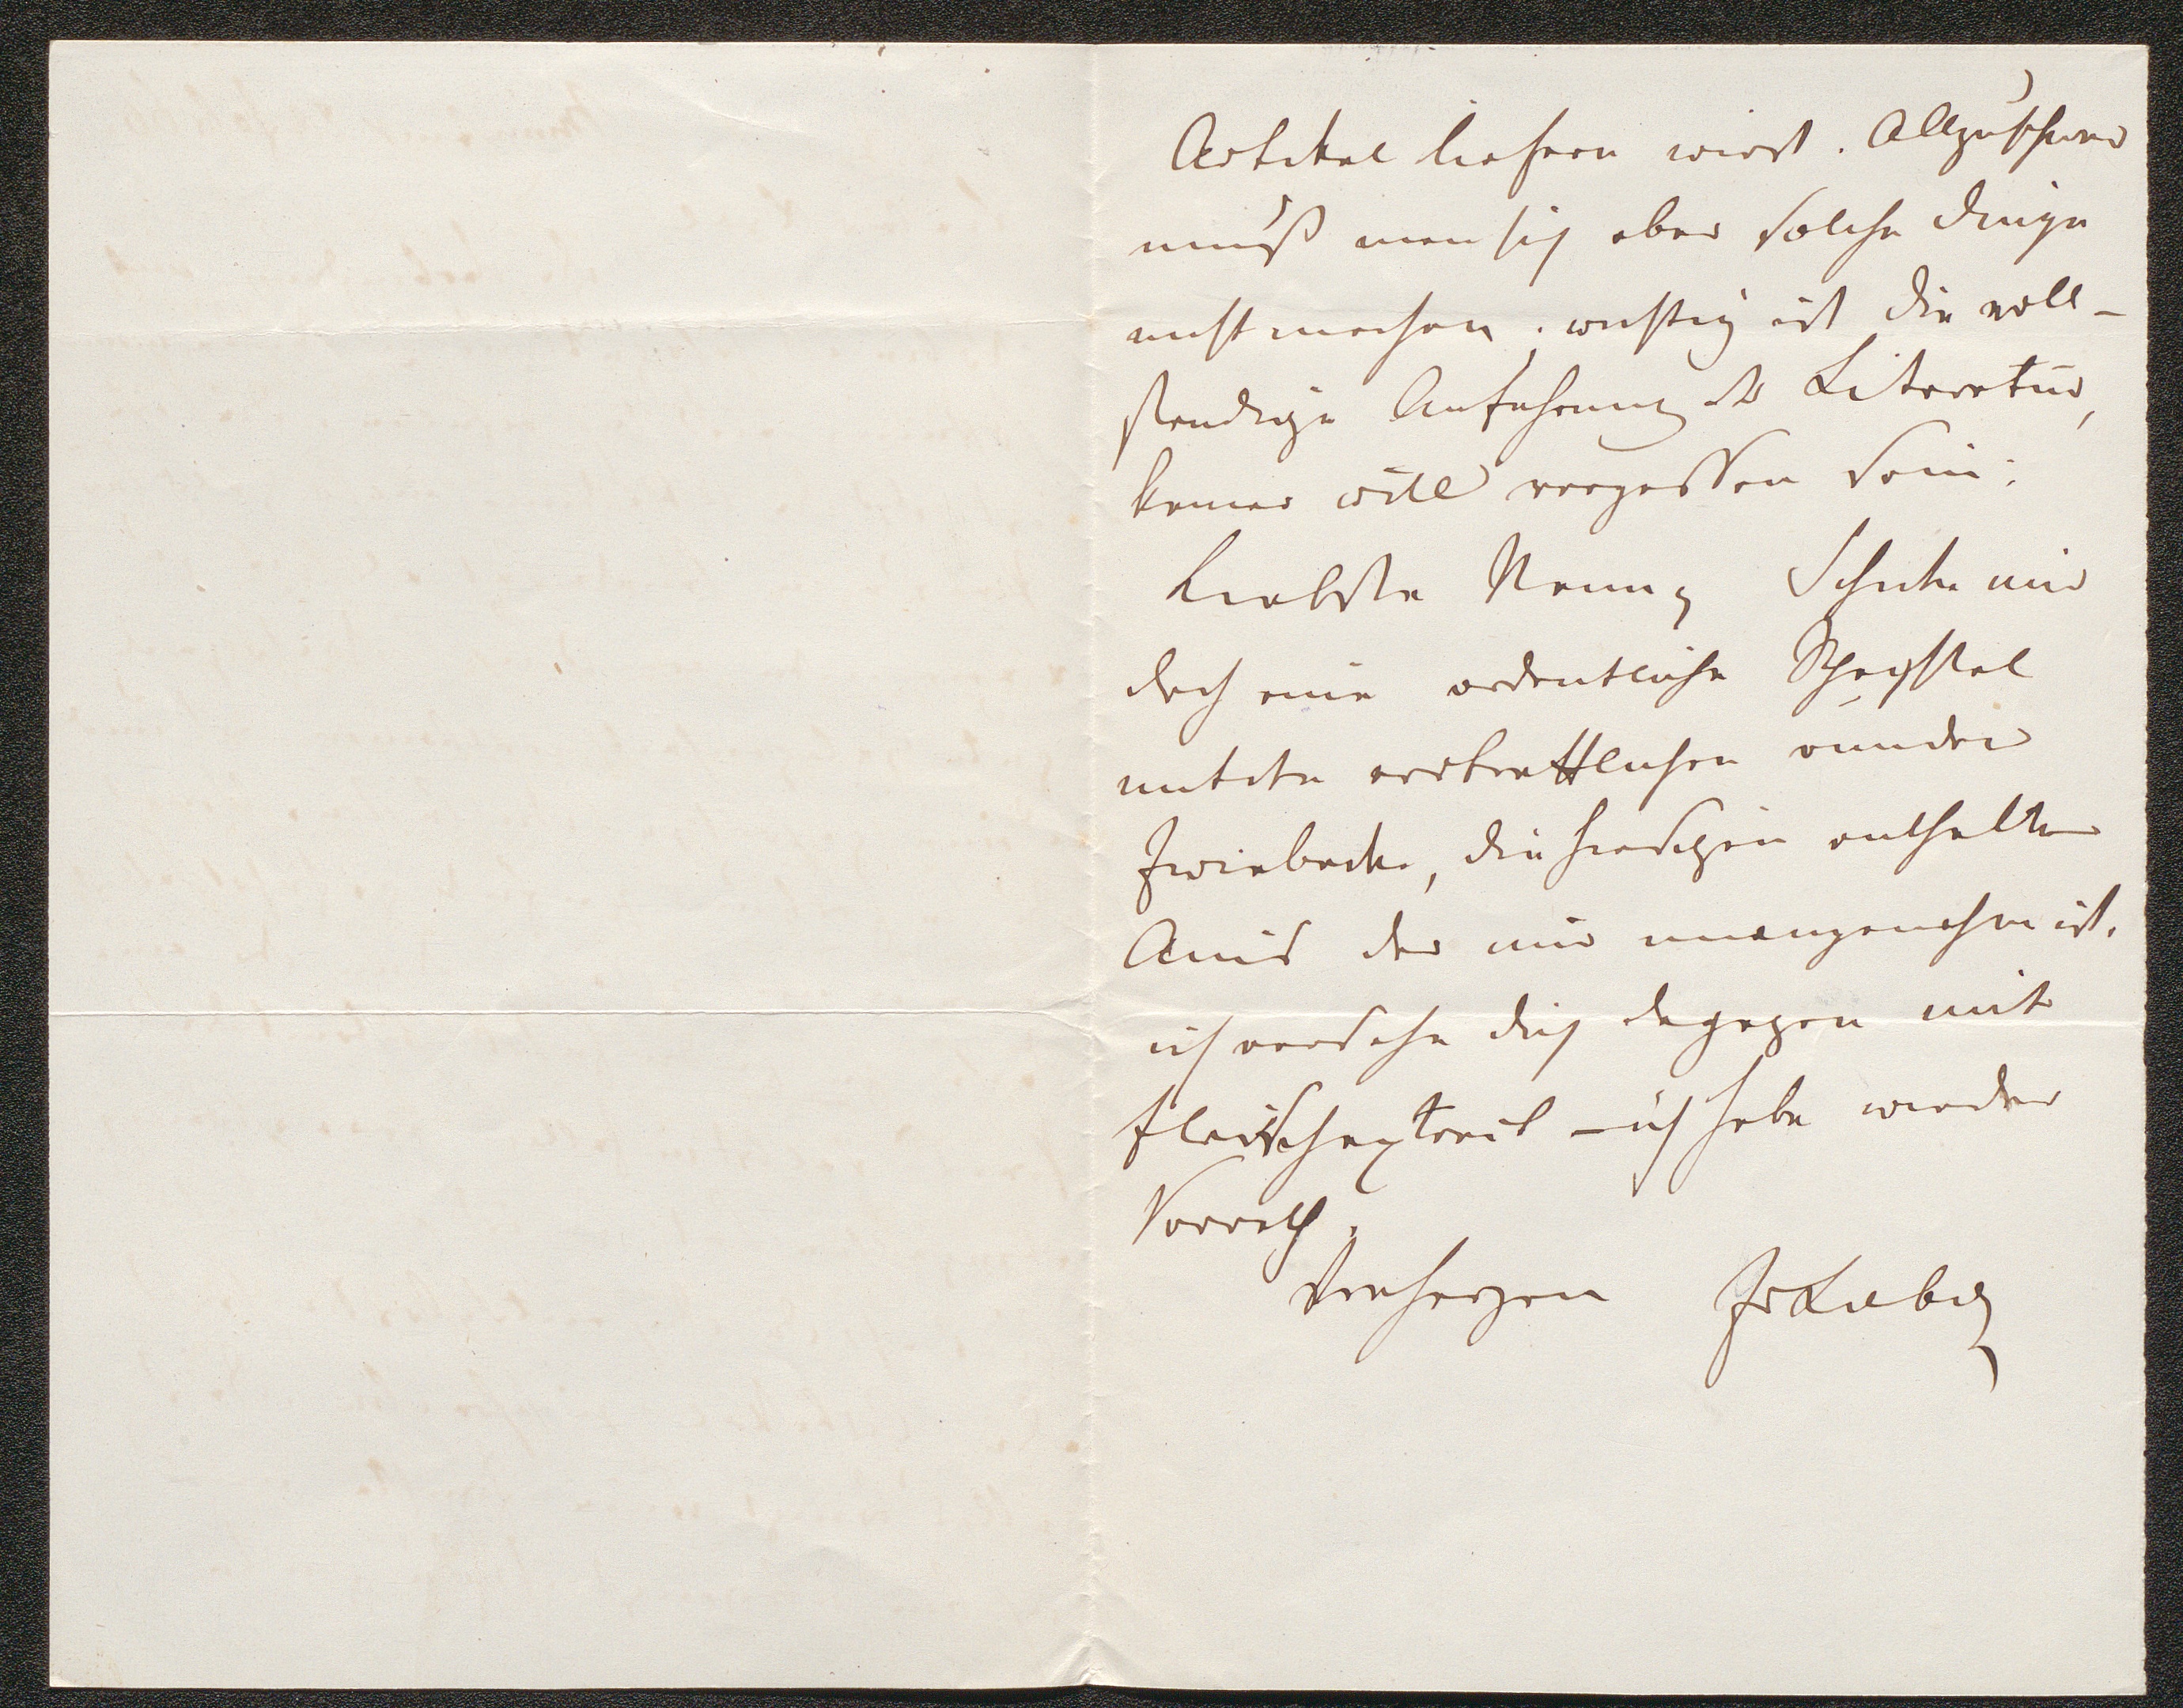 Artikel liefern wirst. Allzuschwer
muß man sich aber solche Dinge
nicht machen; wichtig ist die voll-
ständige Anführung der Literatur,
keiner will vergessen sein.
Liebste Nanny Schicke mir
doch eine ordentliche Schachtel
mit den vortrefflichen runden
Zwiebacke, die hiesigen enthalten
Anis der mir unangenehm ist.
ich versehe dich dagegen mit
Fleischextract – ich habe wieder
Vorrath.
Von Herzen JvLiebig